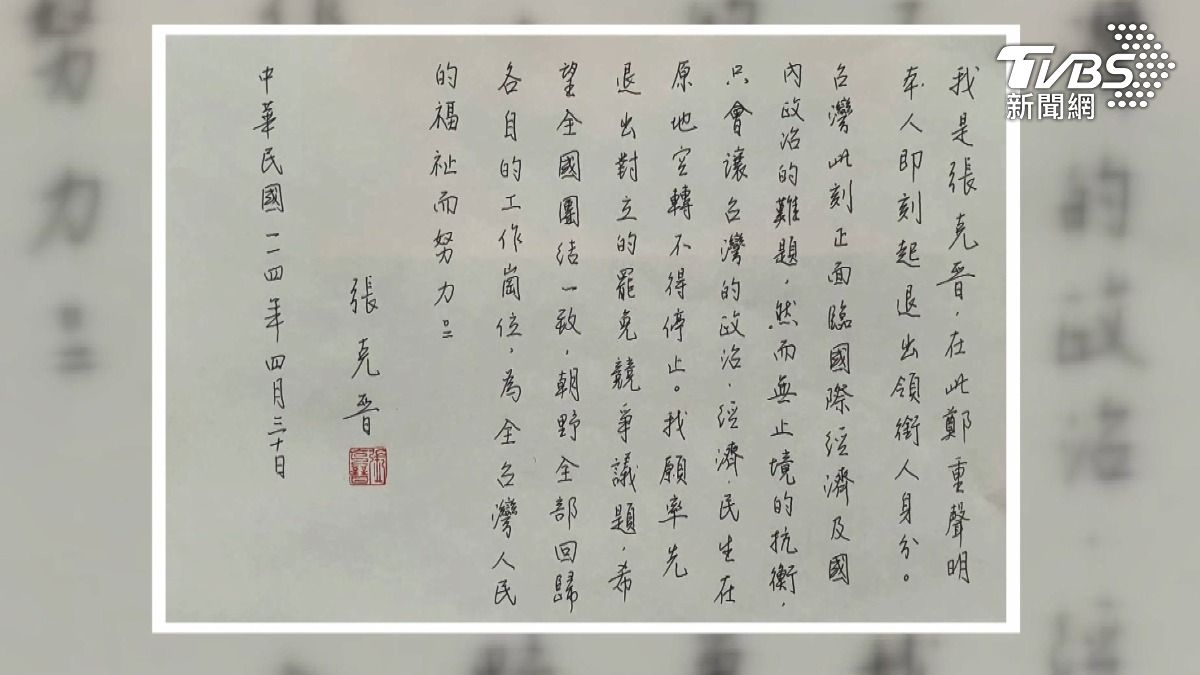 TVBS
新聞網
我是張克晋,在此鄭重聲明
本人即刻起退出領銜人身分。
台灣此刻正面臨國際經濟及國
內政治的難題,然而無止境的抗衡,
只會讓台灣的政治、經濟、民生在
原地空轉不得停止。我願率先
退出對立的罷免競爭議題,希
望全國團結一致,朝野全部回歸
各自的工作崗位,為全台灣人民
的福祉而努力。
張克晋
中華民國一一四年四月三十日